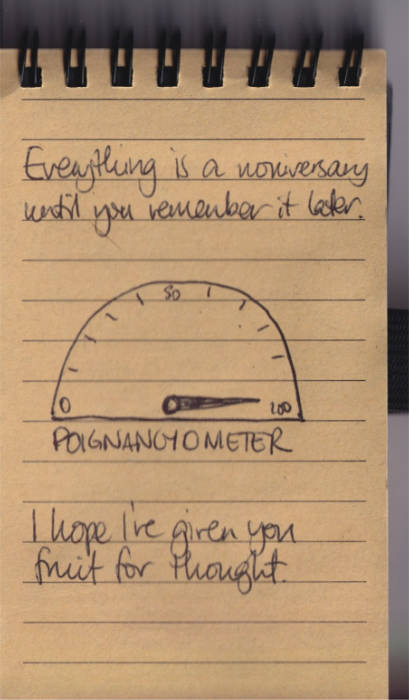 Everything is a noniversary
until you remember it later.
50
0
100
POIGNANCYOMETER
I hope I've given you
fruit for thought.